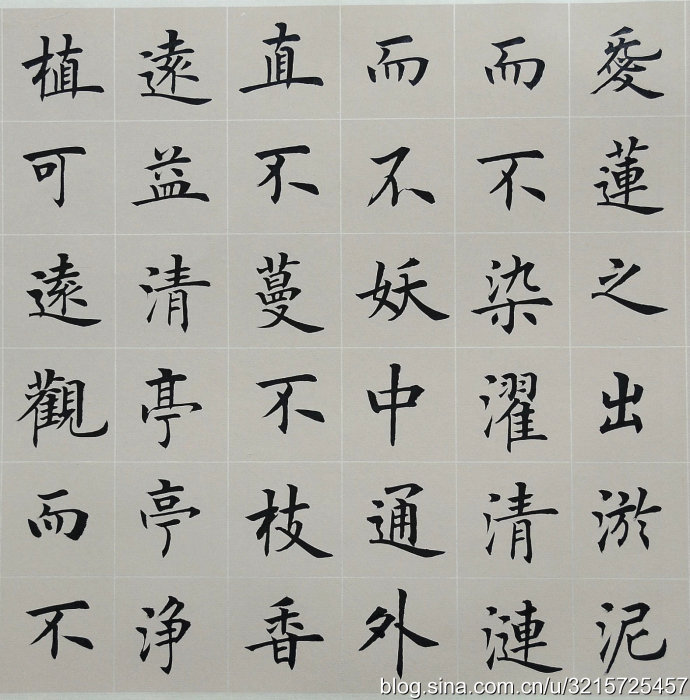 愛蓮之出淤泥
而不染濯清漣
而不妖中通外
直不蔓不枝香
遠益清亭亭淨
植可遠觀而不
blog.sina.com.cn/u/3215725457